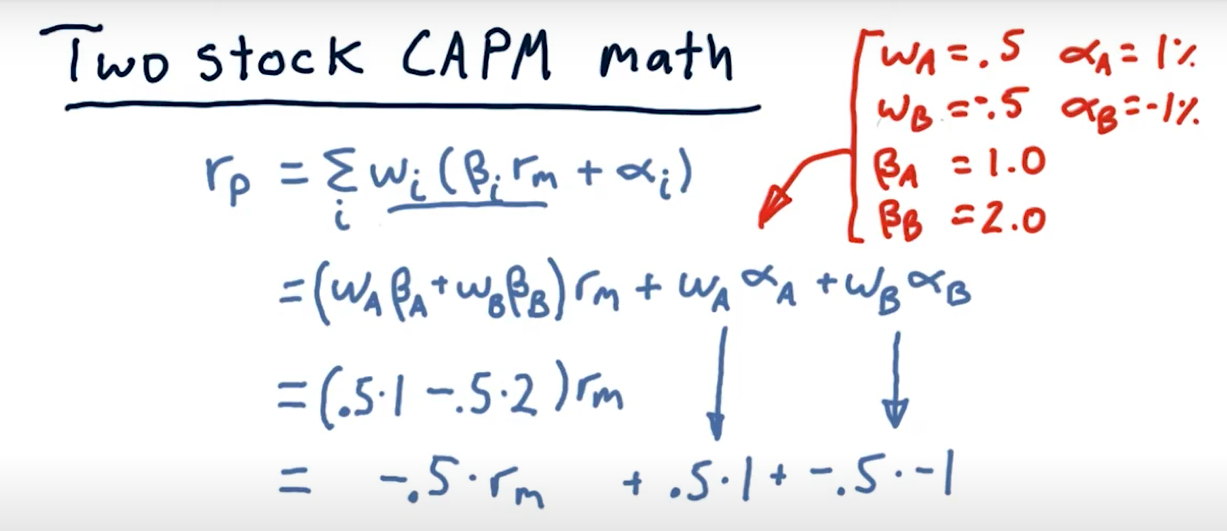 Two stock CAPM math
wA = .5 αA = 1%
wB = -.5 αB = -1%
βA = 1.0
βB = 2.0
rp = Σi wi (βi rm + αi)
= (wA βA + wB βB) rm + wA αA + wB αB
= (.5·1 - .5·2) rm
= -.5·rm + .5·1 + -.5·-1